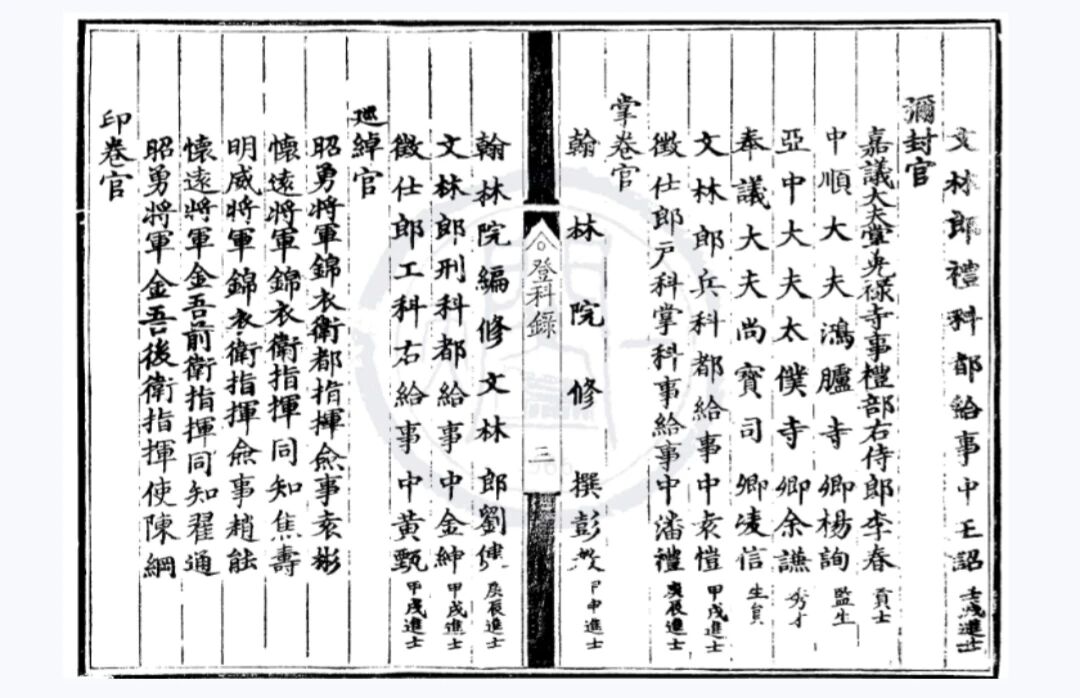 文林郎禮科都給事中王詔 壬戌進士
彌封官
嘉議大夫掌光祿寺事禮部右侍郎李春 貢士
中順大夫鴻臚寺卿楊詢 監生
亞中大夫太僕寺卿余謙 秀才
奉議大夫尚寶司卿凌信 生員
文林郎兵科都給事中袁愷 甲戌進士
徵仕郎戶科掌科事給事中潘禮 庚辰進士
掌卷官
翰林院修撰彭教 甲申進士
登科錄
三
翰林院編修文林郎劉健 庚辰進士
文林郎刑科都給事中金紳 甲戌進士
徵仕郎工科右給事中黃甄 甲戌進士
廵綽官
昭勇將軍錦衣衛都指揮僉事袁彬
懷遠將軍錦衣衛指揮同知焦壽
明威將軍錦衣衛指揮僉事趙能
懷遠將軍金吾前衛指揮同知翟通
昭勇將軍金吾後衛指揮使陳綱
印卷官